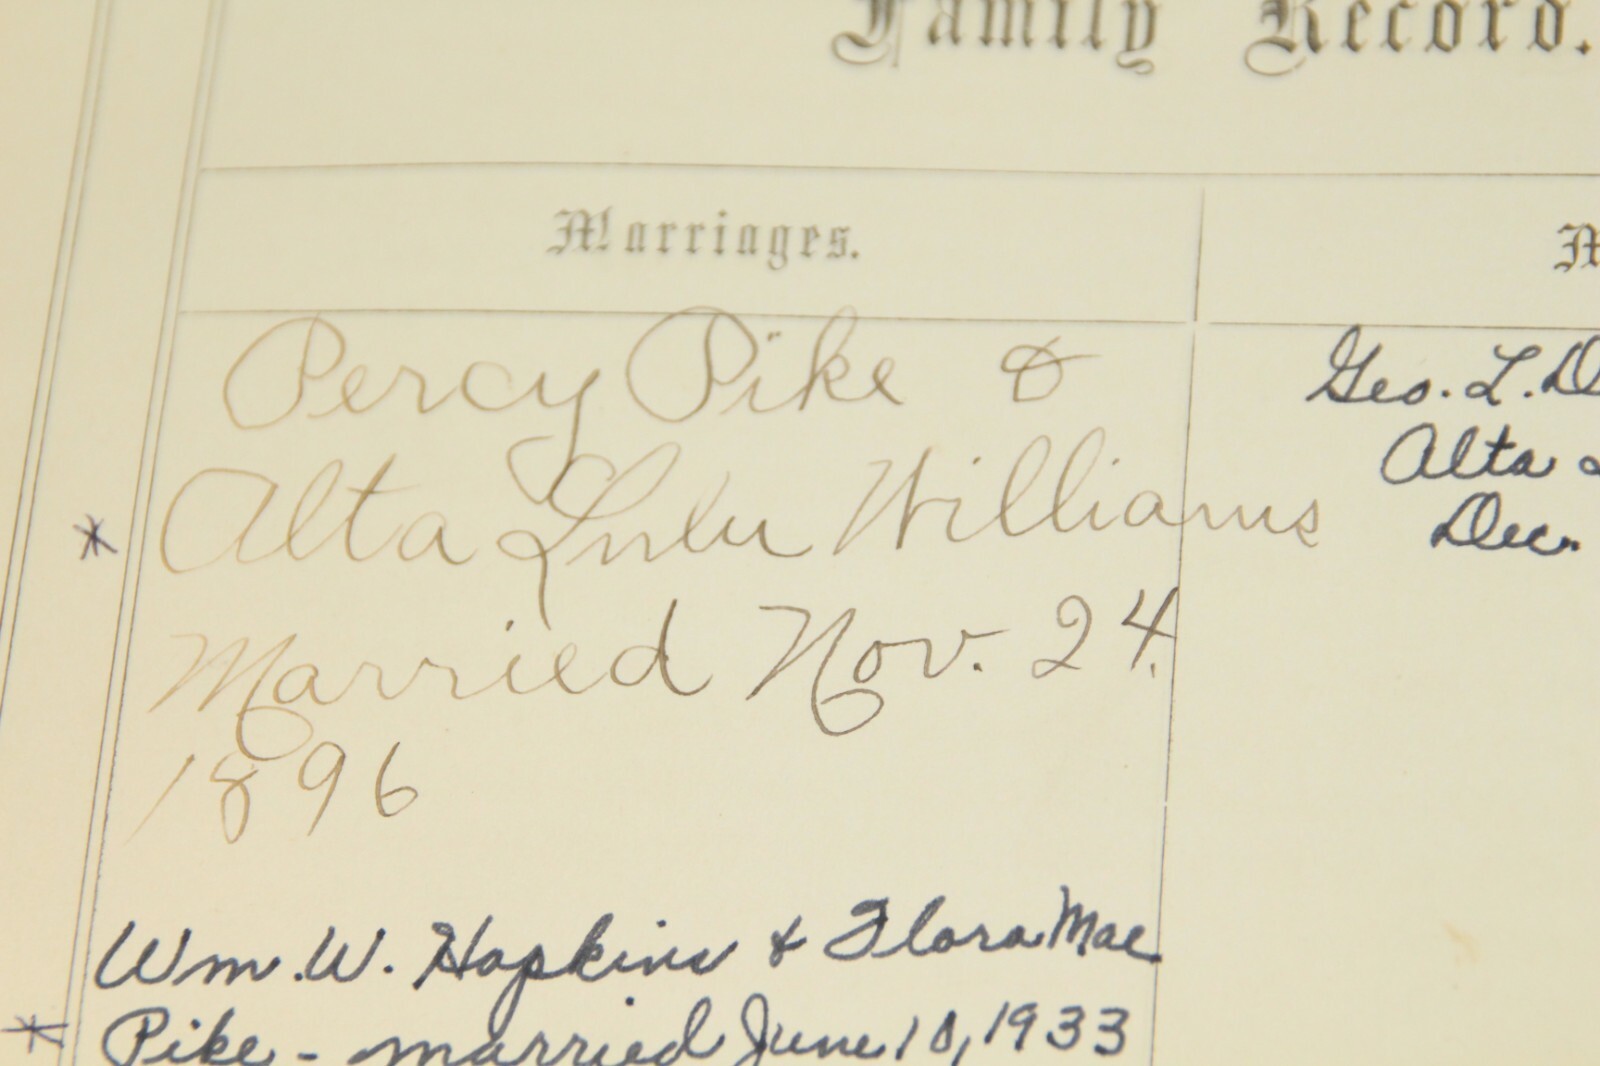 Family Record.
Marriages.
Percy Pike &
Alta Lulu Williams
Married Nov. 24.
1896
Wm. W. Hopkins & Flora Mae
Pike - married June 10, 1933
Geo. L.
Alta
Dec.